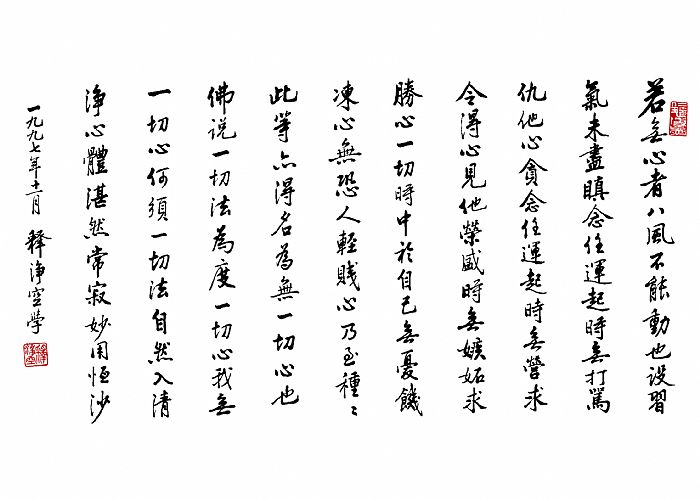 若無心者八風不能動也设習
氣未盡瞋念任運起時無打罵
仇他心貪念任運起時無營求
令得心見他榮盛時無嫉妬求
勝心一切時中於自己無憂饑
凍心無恐人輕賤心乃至種〻
此等亦得名為無一切心也
佛说一切法為度一切心我無
一切心何須一切法自然入清
淨心體湛然常寂妙用恒沙
一九九七年十一月 释淨空學